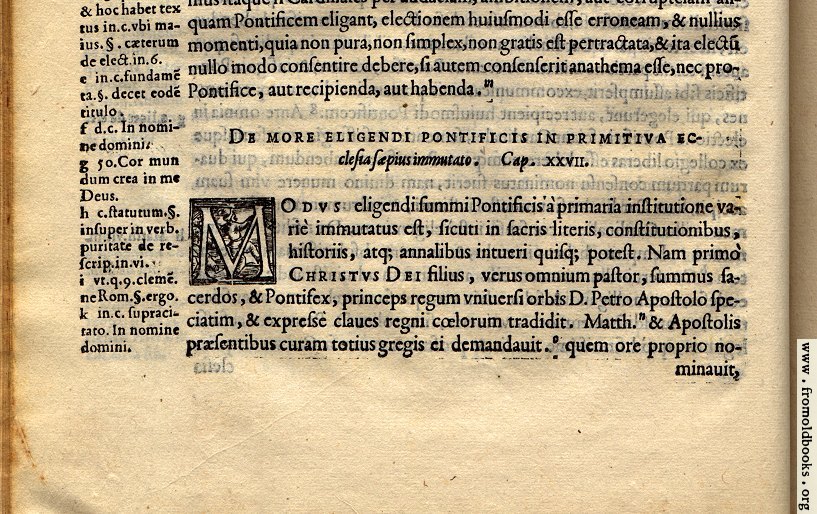 & hoc habet tex
tus in.c.vbi ma-
ius.§. cæterum
de elect.in.6.
e in.c.fundamẽ
ta.§. decet eodẽ
titulo.
f d.c. In nomi-
ne domini.
g 50.Cor mun
dum crea in me
Deus.
h c.statutum.§.
insuper in verb.
puritate de re-
scrip.in.vi.
i vt.q.9.clemẽ.
ne Rom.§.ergo.
k in.c. supraci-
tato. In nomine
domini.
quam Pontificem eligant, electionem huiusmodi esse erroneam, & nullius
momenti,quia non pura,non simplex,non gratis est pertractata,& ita electũ
nullo modo consentire debere,si autem consenserit anathema esse,nec pro-
Pontifice, aut recipienda, aut habenda.ᵐ
DE MORE ELIGENDI PONTIFICIS IN PRIMITIVA EC-
clesia sæpius immutato. Cap. XXVII.
MODVS eligendi summi Pontificis à primaria institutione va-
riè immutatus est, sicuti in sacris literis, constitutionibus,
historiis, atq; annalibus intueri quisq; potest. Nam primò
CHRISTVS DEI filius, verus omnium pastor, summus sa-
cerdos, & Pontifex, princeps regum vniuersi orbis D. Petro Apostolo spe-
ciatim, & expressè claues regni cœlorum tradidit. Matth.ⁿ & Apostolis
præsentibus curam totius gregis ei demandauit.º quem ore proprio no-
minauit,
www.fromoldbooks.org